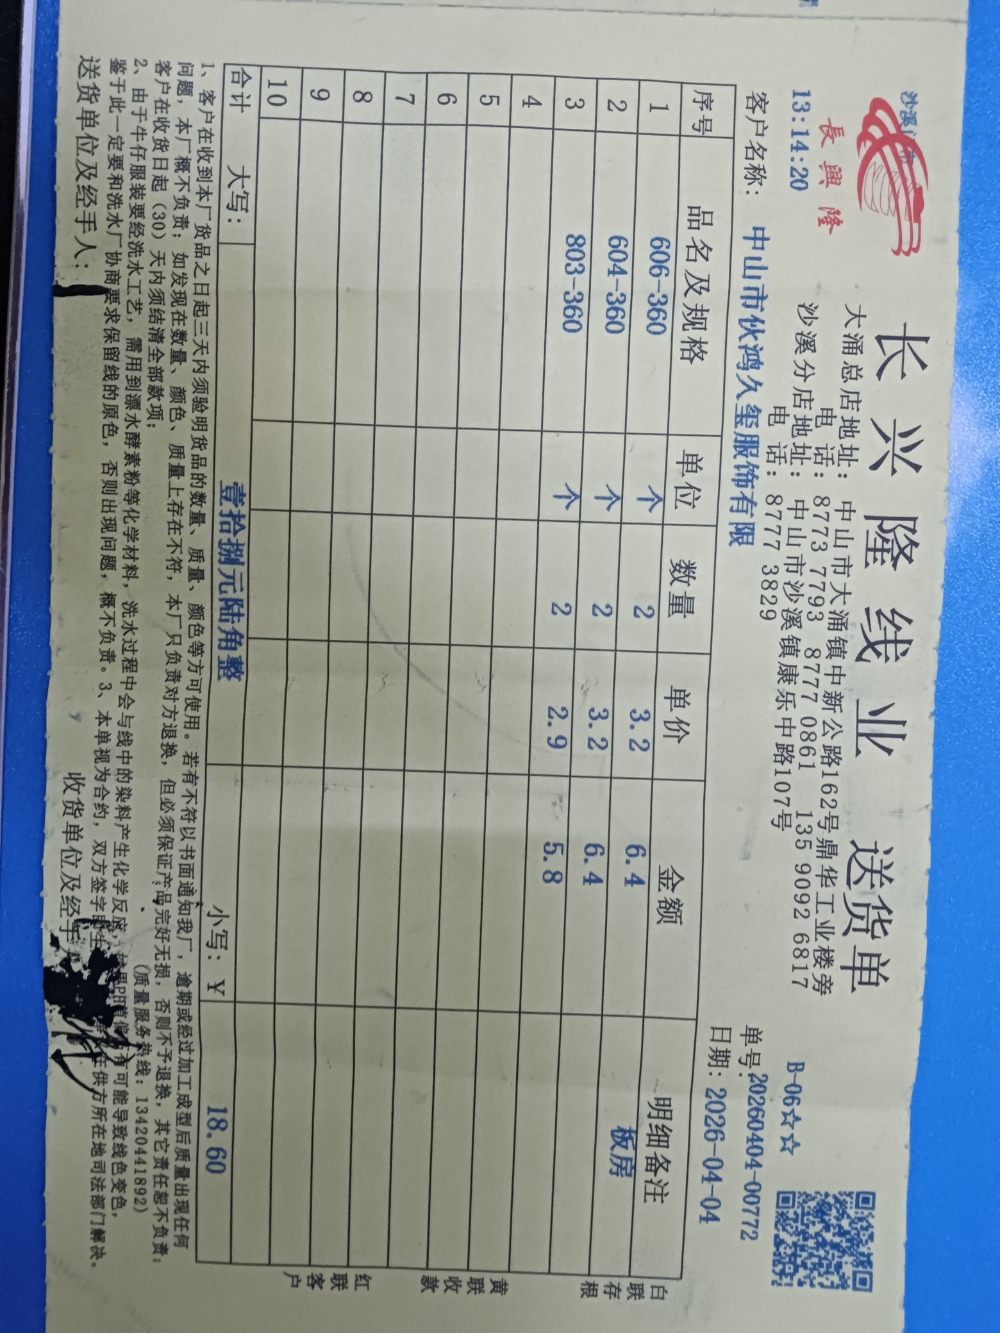 長興隆
长兴隆线业 送货单
B-06☆☆
大涌总店地址：中山市大涌镇中新公路162号鼎华工业楼旁
电话：8773 7793 8777 0861 135 9092 6817
沙溪分店地址：中山市沙溪镇康乐中路107号
电话：8777 3829
13:14:20
单号：20260404-00772
客户名称：中山市伙鸿久玺服饰有限
日期：2026-04-04
序号 品名及规格 单位 数量 单价 金额 明细备注
1 606-360 个 2 3.2 6.4
2 604-360 个 2 3.2 6.4 板房
3 803-360 个 2 2.9 5.8
4
5
6
7
8
9
10
合计 大写：壹拾捌元陆角整 小写：￥ 18.60
白联存根
黄联收款
红联客户
1、客户在收到本厂货品之日起三天内须验明货品的数量、质量、颜色等方可使用。若有不符以书面通知我厂，逾期或经过加工成型后质量出现任何
问题，本厂概不负责；如发现在数量、颜色、质量上存在不符，本厂只负责对方退换，但必须保证产品完好无损，否则不予退换，其它责任恕不负责；
客户在收货日起（30）天内须结清全部款项；（质量服务热线：13420441892）
2、由于牛仔服装要经洗水工艺，需用到漂水酵素粉等化学材料，洗水过程中会与线中的染料产生化学反应，有可能导致线色变色，
鉴于此一定要和洗水厂协商要求保留线的原色，否则出现问题，概不负责。3、本单视为合约，双方签字即生 供方所在地司法部门解决。
送货单位及经手人： 收货单位及经手